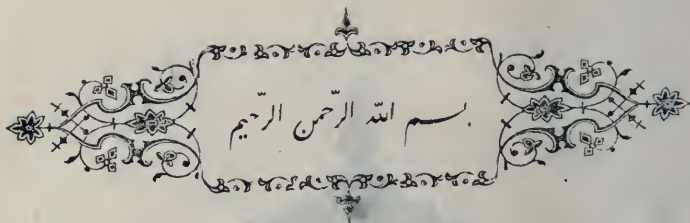 بسم الله الرّحمن الرّحيم